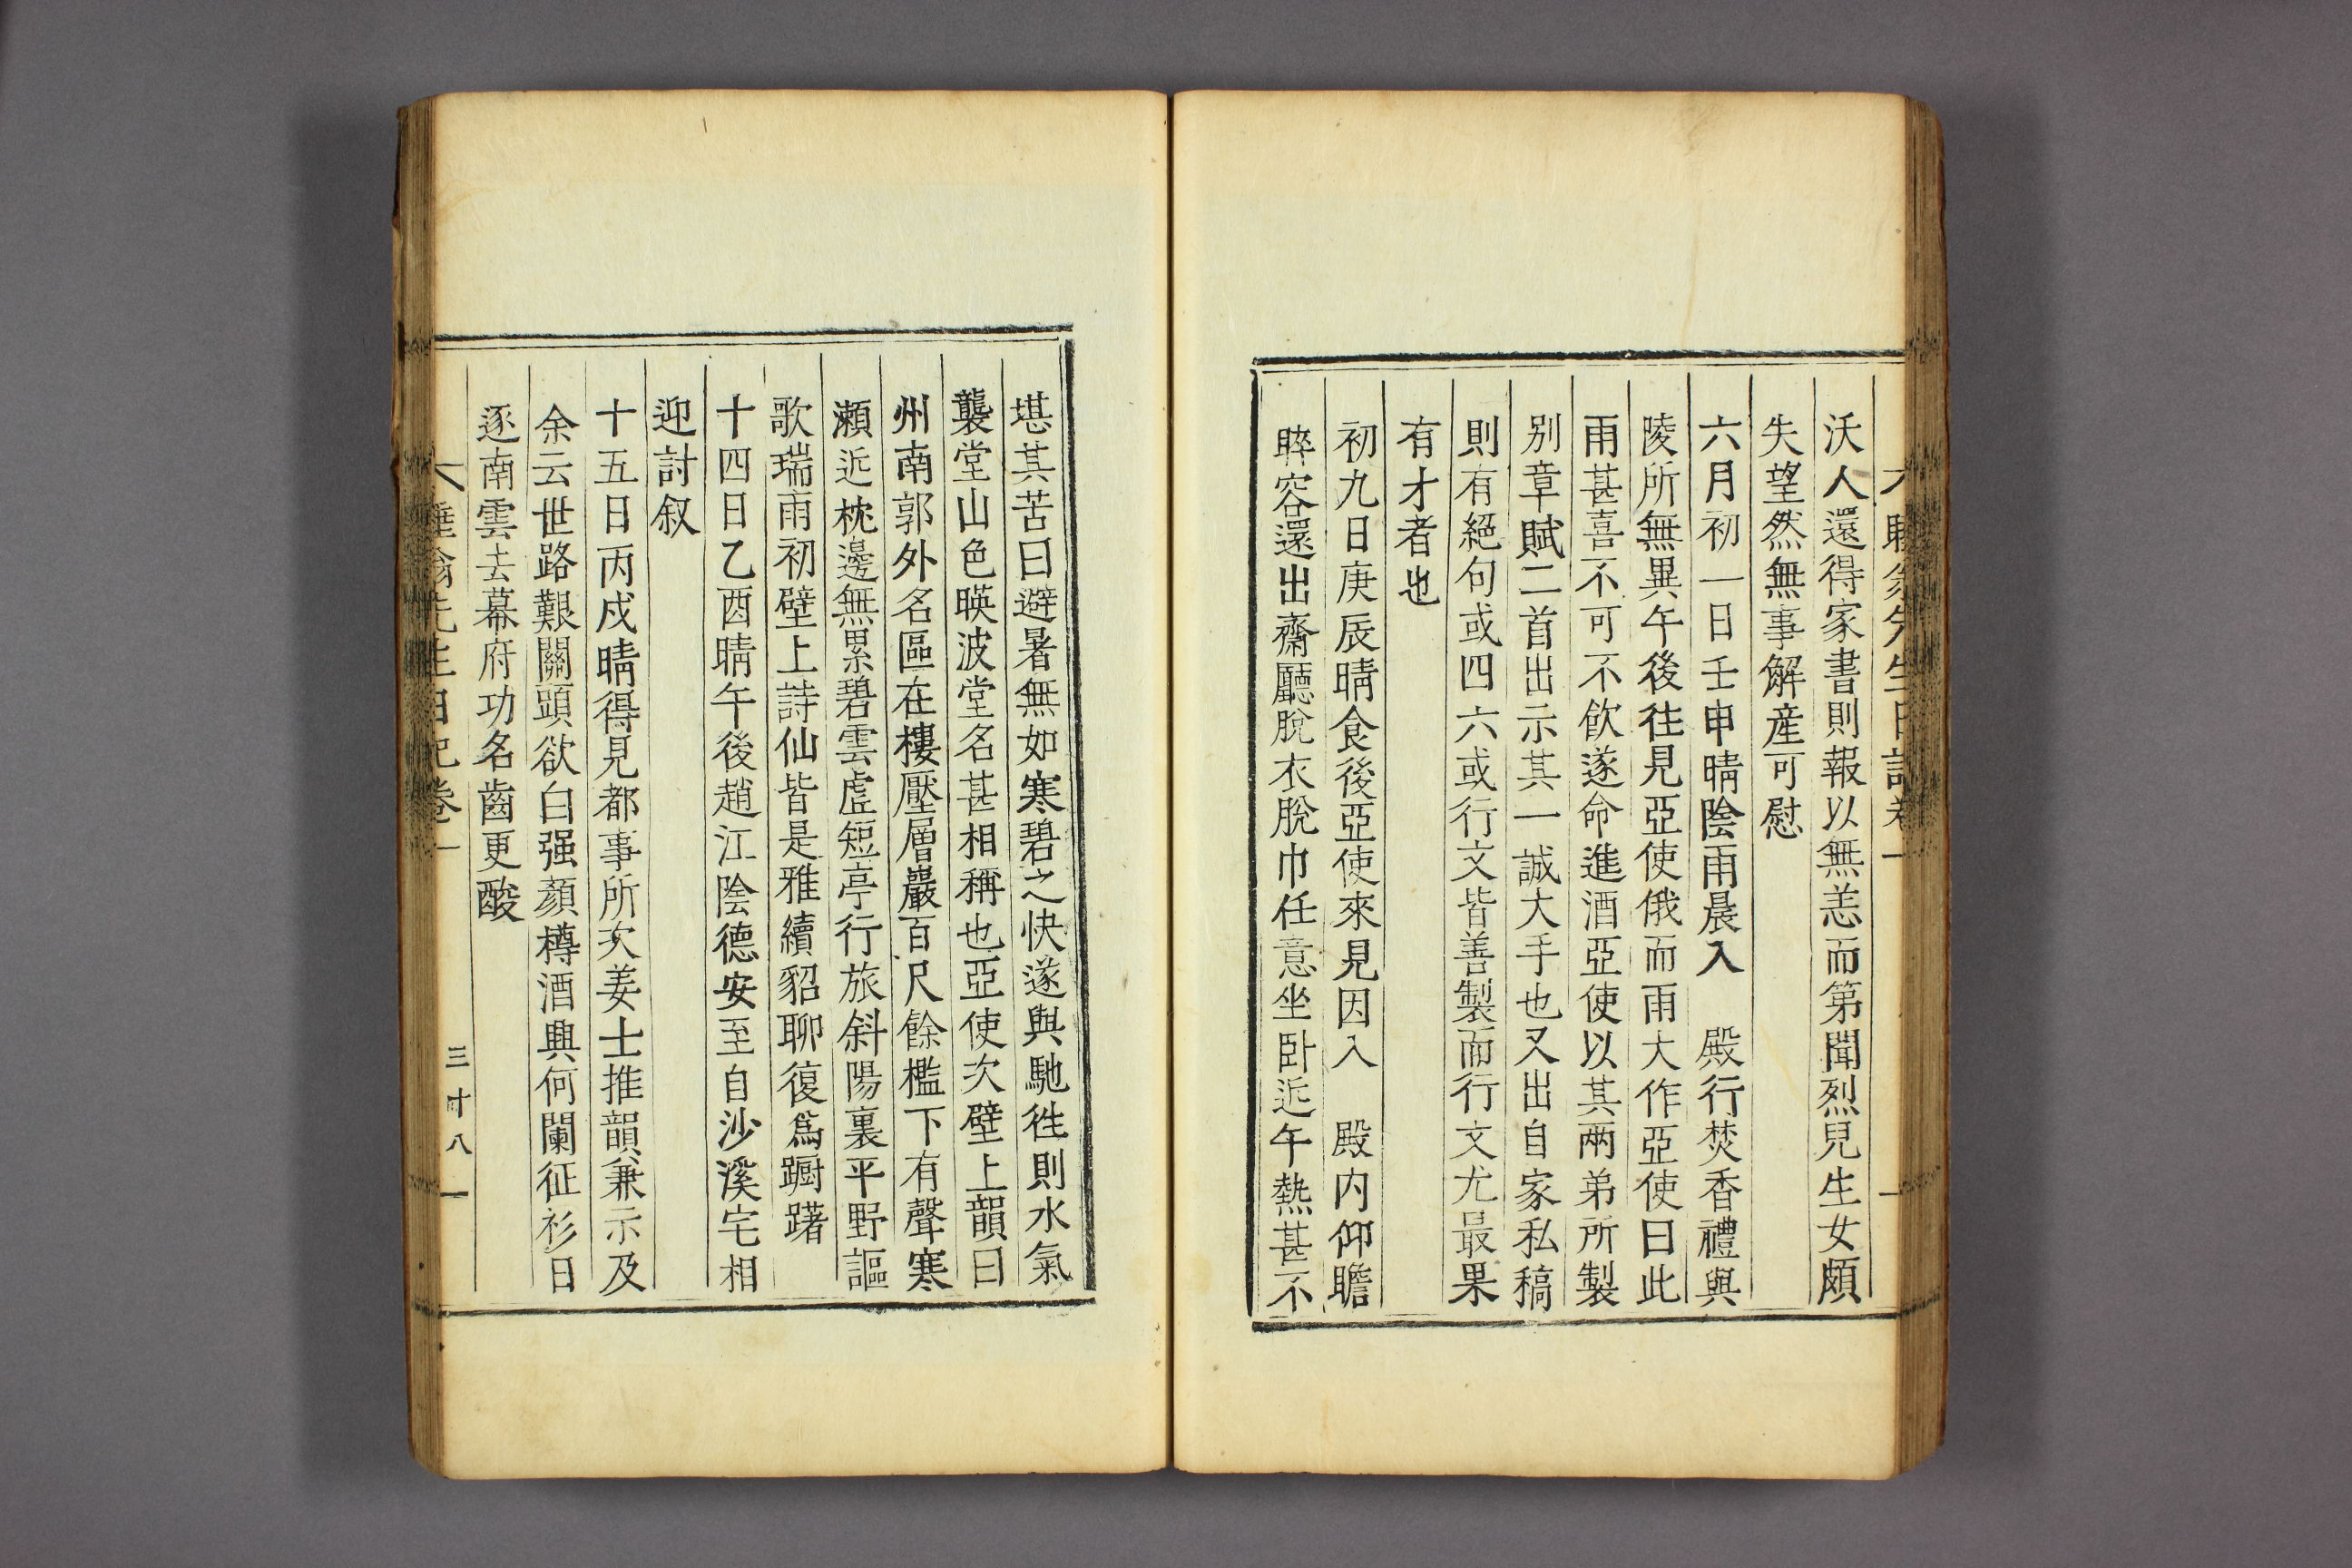 沃人還得家書則報以無恙而第聞烈兒生女頗
失望然無事解産可慰
六月初一日壬申晴陰雨晨入　殿行焚香禮與
陵所無異午後往見亞使俄而雨大作亞使曰此
雨甚喜不可不飲遂命進酒亞使以其兩弟所製
別章賦二首出示其一誠大手也又出自家私稿
則有絕句或四六或行文皆善製而行文尤最果
有才者也
初九日庚辰晴食後亞使來見因入　殿內仰瞻
睟容還出齋廳脫衣脫巾任意坐卧近午熱甚不
堪其苦曰避暑無如寒碧之快遂與馳徃則水氣
襲堂山色暎波堂名甚相稱也亞使次壁上韻曰
州南郭外名區在樓壓層巖百尺餘檻下有聲寒
瀨近枕邊無累碧雲虛短亭行旅斜陽裏平野謳
歌瑞雨初壁上詩仙皆是雅續貂聊復爲躕躇
十四日乙酉晴午後趙江陰德安至自沙溪宅相
迎討叙
十五日丙戌晴得見都事所次姜士推韻兼示及
余云世路艱關頭欲白强顏樽酒興何闌征衫日
逐南雲去幕府功名齒更酸
先生日記卷一
三十八